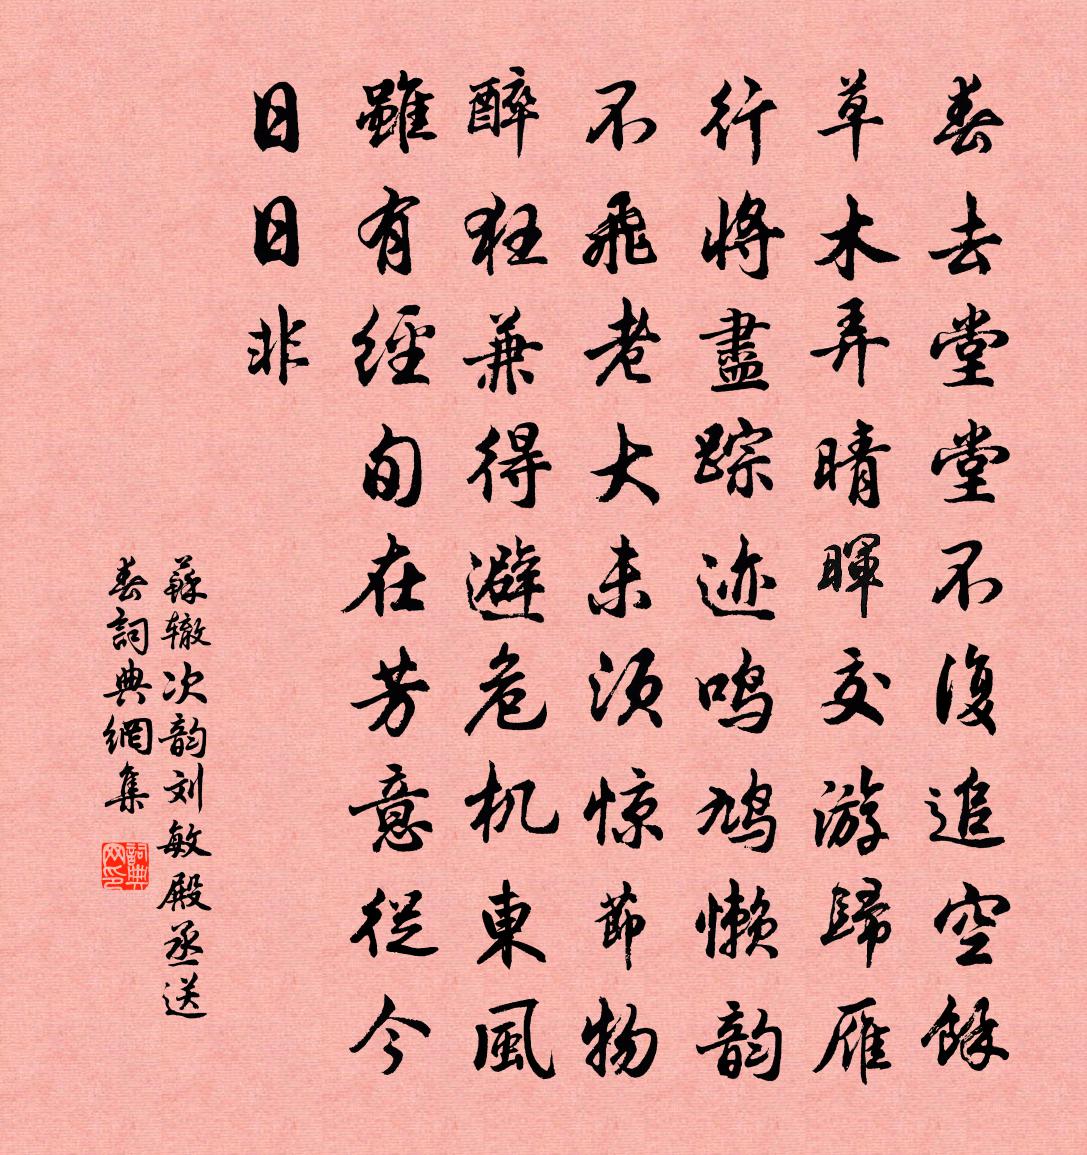 春去堂堂不復追空餘
草木弄晴暉交游歸雁
行將盡踪迹鸣鸠懒韵
不飛老大未须惊節物
醉狂兼得避危机東風
雖有經旬在芳意從今
日日非
蘇辙次韵刘敏殿丞送
春詞典網集
詞典
网印